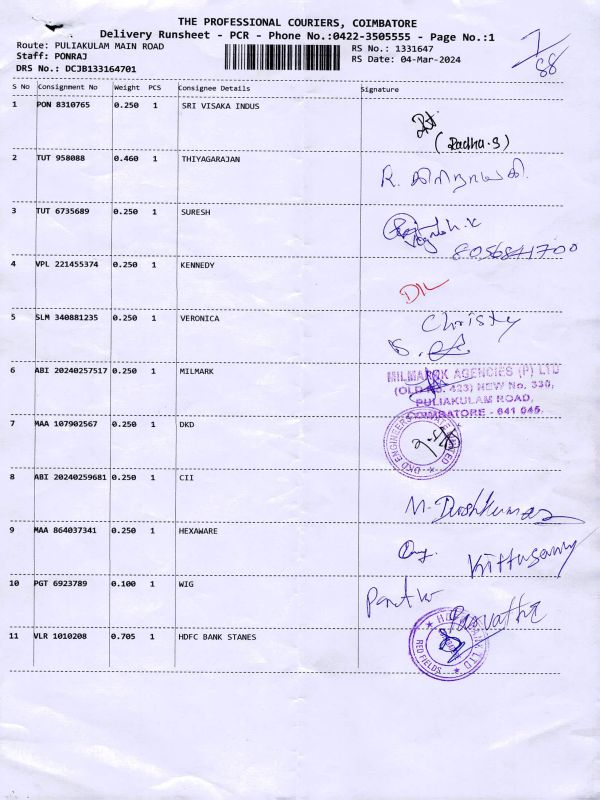 THE PROFESSIONAL COURIERS, COIMBATORE
Delivery Runsheet - PCR - Phone No.:0422-3505555 - Page No.:1
Route: PULIAKULAM MAIN ROAD
Staff: PONRAJ
DRS No.: DCJB133164701
RS No.: 1331647
RS Date: 04-Mar-2024
7/88
S No Consignment No Weight PCS Consignee Details Signature
1 PON 8310765 0.250 1 SRI VISAKA INDUS
(Radha.S)
2 TUT 958088 0.460 1 THIYAGARAJAN
3 TUT 6735689 0.250 1 SURESH
8056841700
4 VPL 221455374 0.250 1 KENNEDY
5 SLM 340881235 0.250 1 VERONICA
Christy
6 ABI 20240257517 0.250 1 MILMARK
MILMARK AGENCIES (P) LTD
(OLD No. 423) NEW No. 330,
PULIAKULAM ROAD,
COIMBATORE - 641 045.
7 MAA 107902567 0.250 1 DKD
DKD ENGINEERS LIMITED
8 ABI 20240259681 0.250 1 CII
9 MAA 864037341 0.250 1 HEXAWARE
Kittusamy
10 PGT 6923789 0.100 1 WIG
Parvathi
11 VLR 1010208 0.705 1 HDFC BANK STANES
RED FIELDS